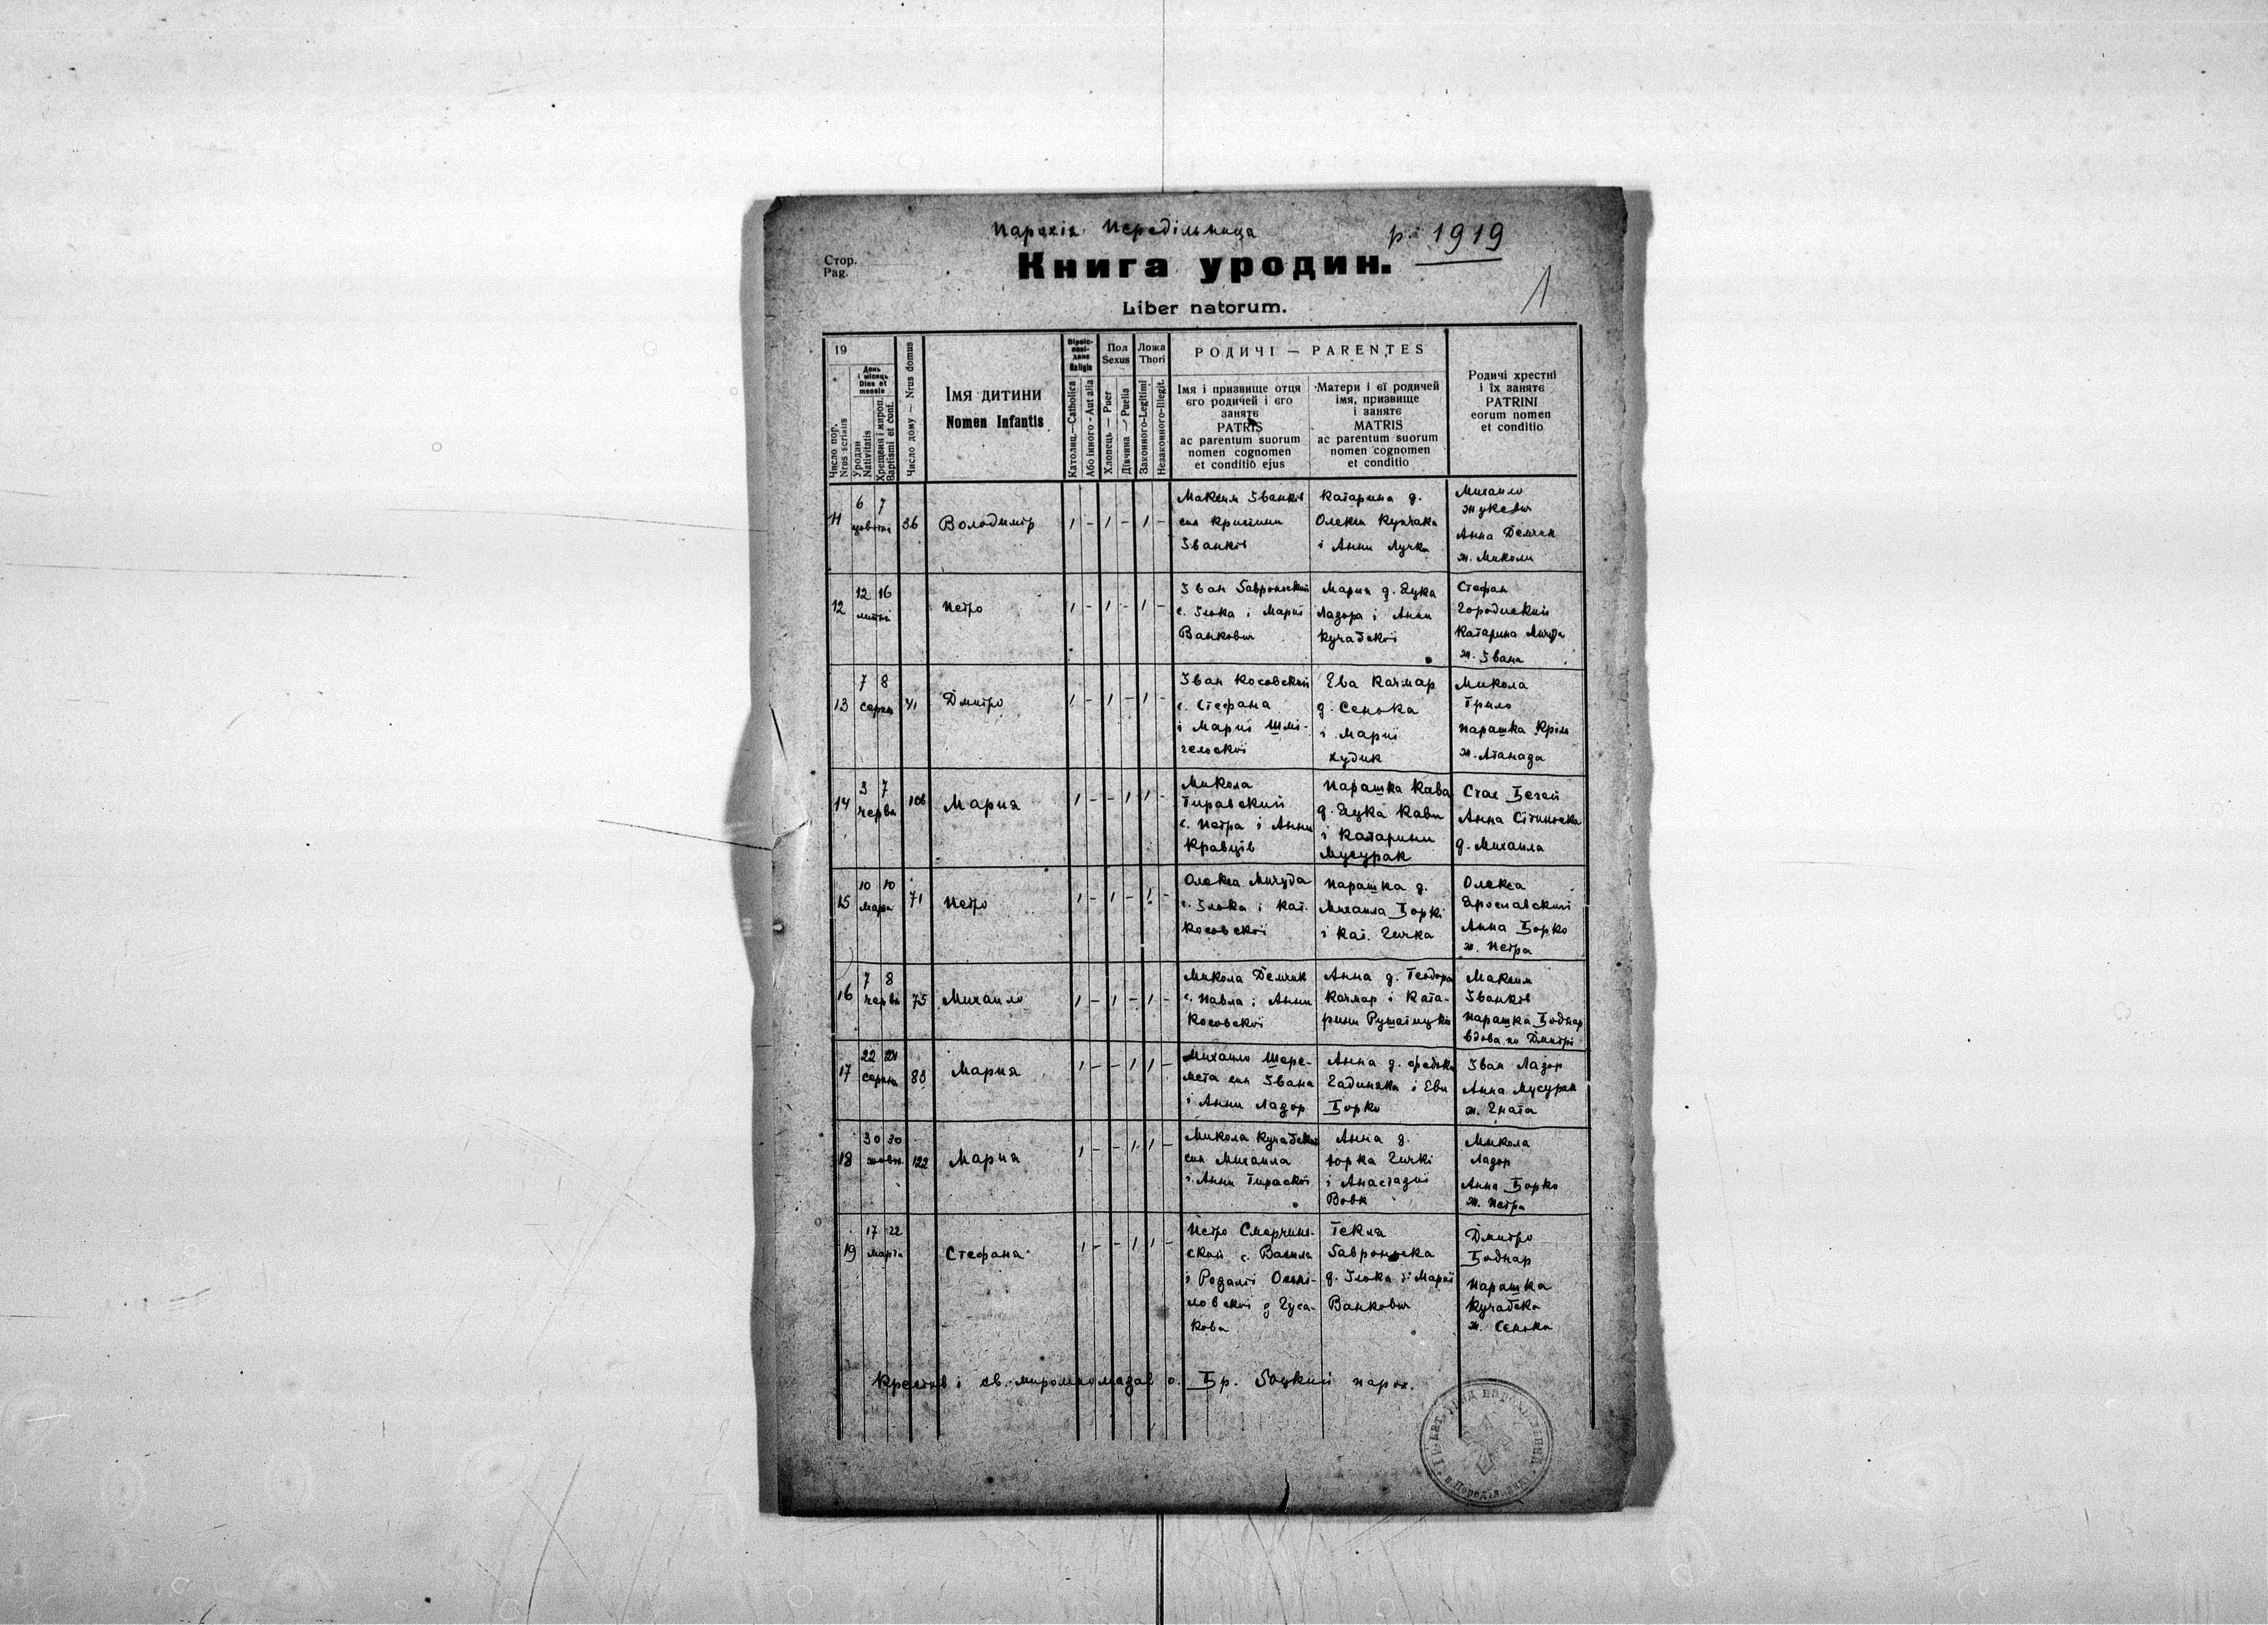 парахія Передільница
р. 1919
Стор.
Pag.
Книга уродин.
1
Liber natorum.
19
Число пор.
Nrus serialis
День
і місяць
Dies et
mensis
Уродин
Nativitatis
Хрещення і мíроп.
Baptismi et conf.
Число дому — Nrus domus
Імя дитини
Nomen Infantis
Віроіс-
пові-
данє
Religio
Католиц.—Catholica
Або інного - Aut alia
Пол
Sexus
Хлопець — Puer
Дівчина — Puella
Ложа
Thori
Законного-Legitimi
Незаконного-Illegit.
РОДИЧІ — PARENTES
Імя і призвище отця
єго родичей і єго
занятє
PATRIS
ac parentum suorum
nomen cognomen
et conditio ejus
Матери і єї родичей
імя, призвище
і занятє
MATRIS
ac parentum suorum
nomen cognomen
et conditio
Родичі хрестні
і їх занятє
PATRINI
eorum nomen
et conditio
11
6 7
36
Володимір
1 - 1 - 1 -
Максим Іванків
син Кристини
Іванків
Катарина д.
Олекси Купчака
і Анни Лучка
Михайло
Жукевич
Анна Демчик
ж. Миколи
12
12 16
липня
Петро
1 - 1 - 1 -
Іван Гавроньский
с. Ілька і Марії
Ванкович
Мария д. Яцка
Ладора і Анни
Кучабскої
Стефан
Городиский
Катарина Мичуда
ж. Івана
13
7 8
серпня
41
Дмитро
1 - 1 - 1 -
Іван Косовский
с. Стефана
і Марії Шмі-
гельскої
Ева Качмар
д. Сенька
і Марії
Худик
Микола
Грило
Парашка Кріль
ж. Атаназа
14
3 7
червн
106
Мария
1 - - 1 1 -
Микола
Тиравский
с. Петра і Анни
Кравців
Парашка Кава
д. Яцка Кави
і Катарини
Мусурак
Стах Бегей
Анна Сітиньска
д. Михайла
15
10 10
марта
71
Петро
1 - 1 - 1 -
Олекса Мичуда
с. Ілька і Кат.
Косовскої
Парашка д.
Михайла Боркі
і Кат. Гички
Олекса
Ярославский
Анна Борко
ж. Петра
16
7 8
червн
75
Михайло
1 - 1 - 1 -
Микола Демчик
с. Павла і Анни
Косовскої
Анна д. Теодора
Качмар і Ката-
рини
Максим
Іванків
Парашка Боднар
вдова по Дмитрі
17
22 24
серпня
83
Мария
1 - - 1 1 -
Михайло Шере-
мета син Івана
і Анни Ладор
Анна д. Федька
Гадиняка і Еви
Борко
Іван Ладор
Анна Мусурак
ж. Гната
18
30 30
жовтн.
122
Мария
1 - - 1 1 -
Микола Кучабский
син Михайла
і Анни Тираскої
Анна д.
Юрка Гичкі
і Анастазиї
Вовк
Микола
Ладор
Анна Борко
ж. Петра
19
17 22
марта
Стефана
1 - - 1 1 -
Петро Смерчинь-
ский с. Василя
і Розалії
з Гуса-
кова
Текля
Гавроньска
д. Ілька і Марії
Ванкович
Дмитро
Боднар
Парашка
Кучабска
ж. Сенька
Крестив і св. миропомазав о. Бр. парох.